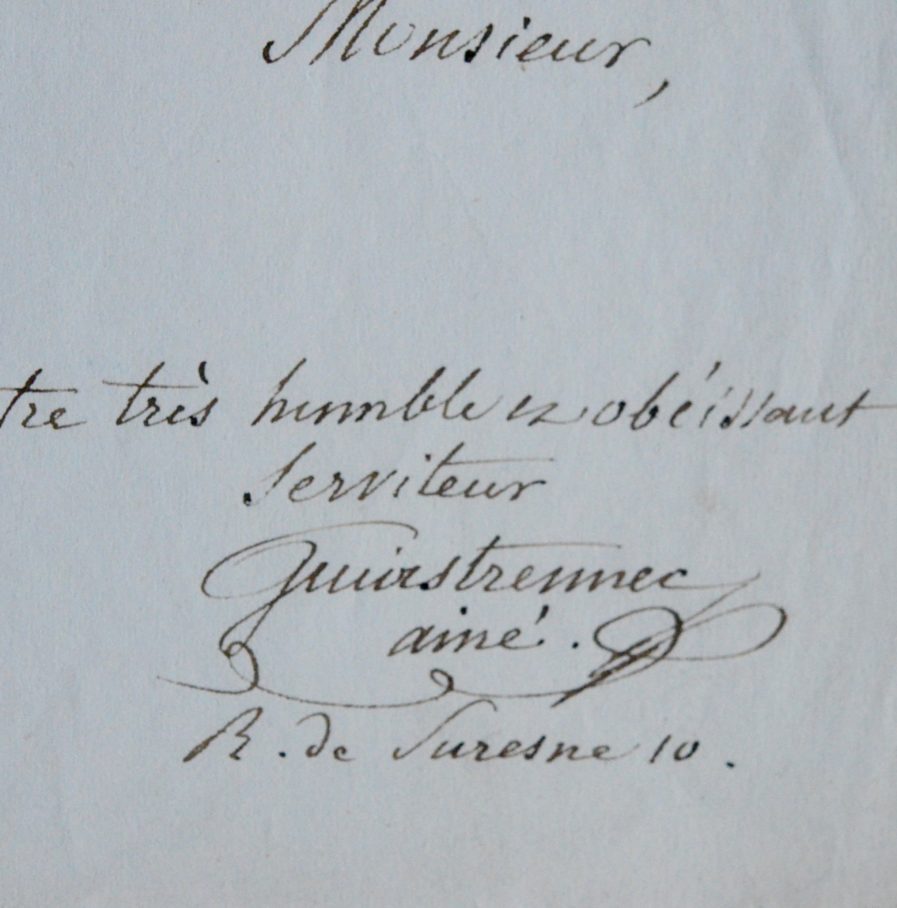 Monsieur,
tre très humble et obéissant
Serviteur
ainé.
R. de Suresne 10.